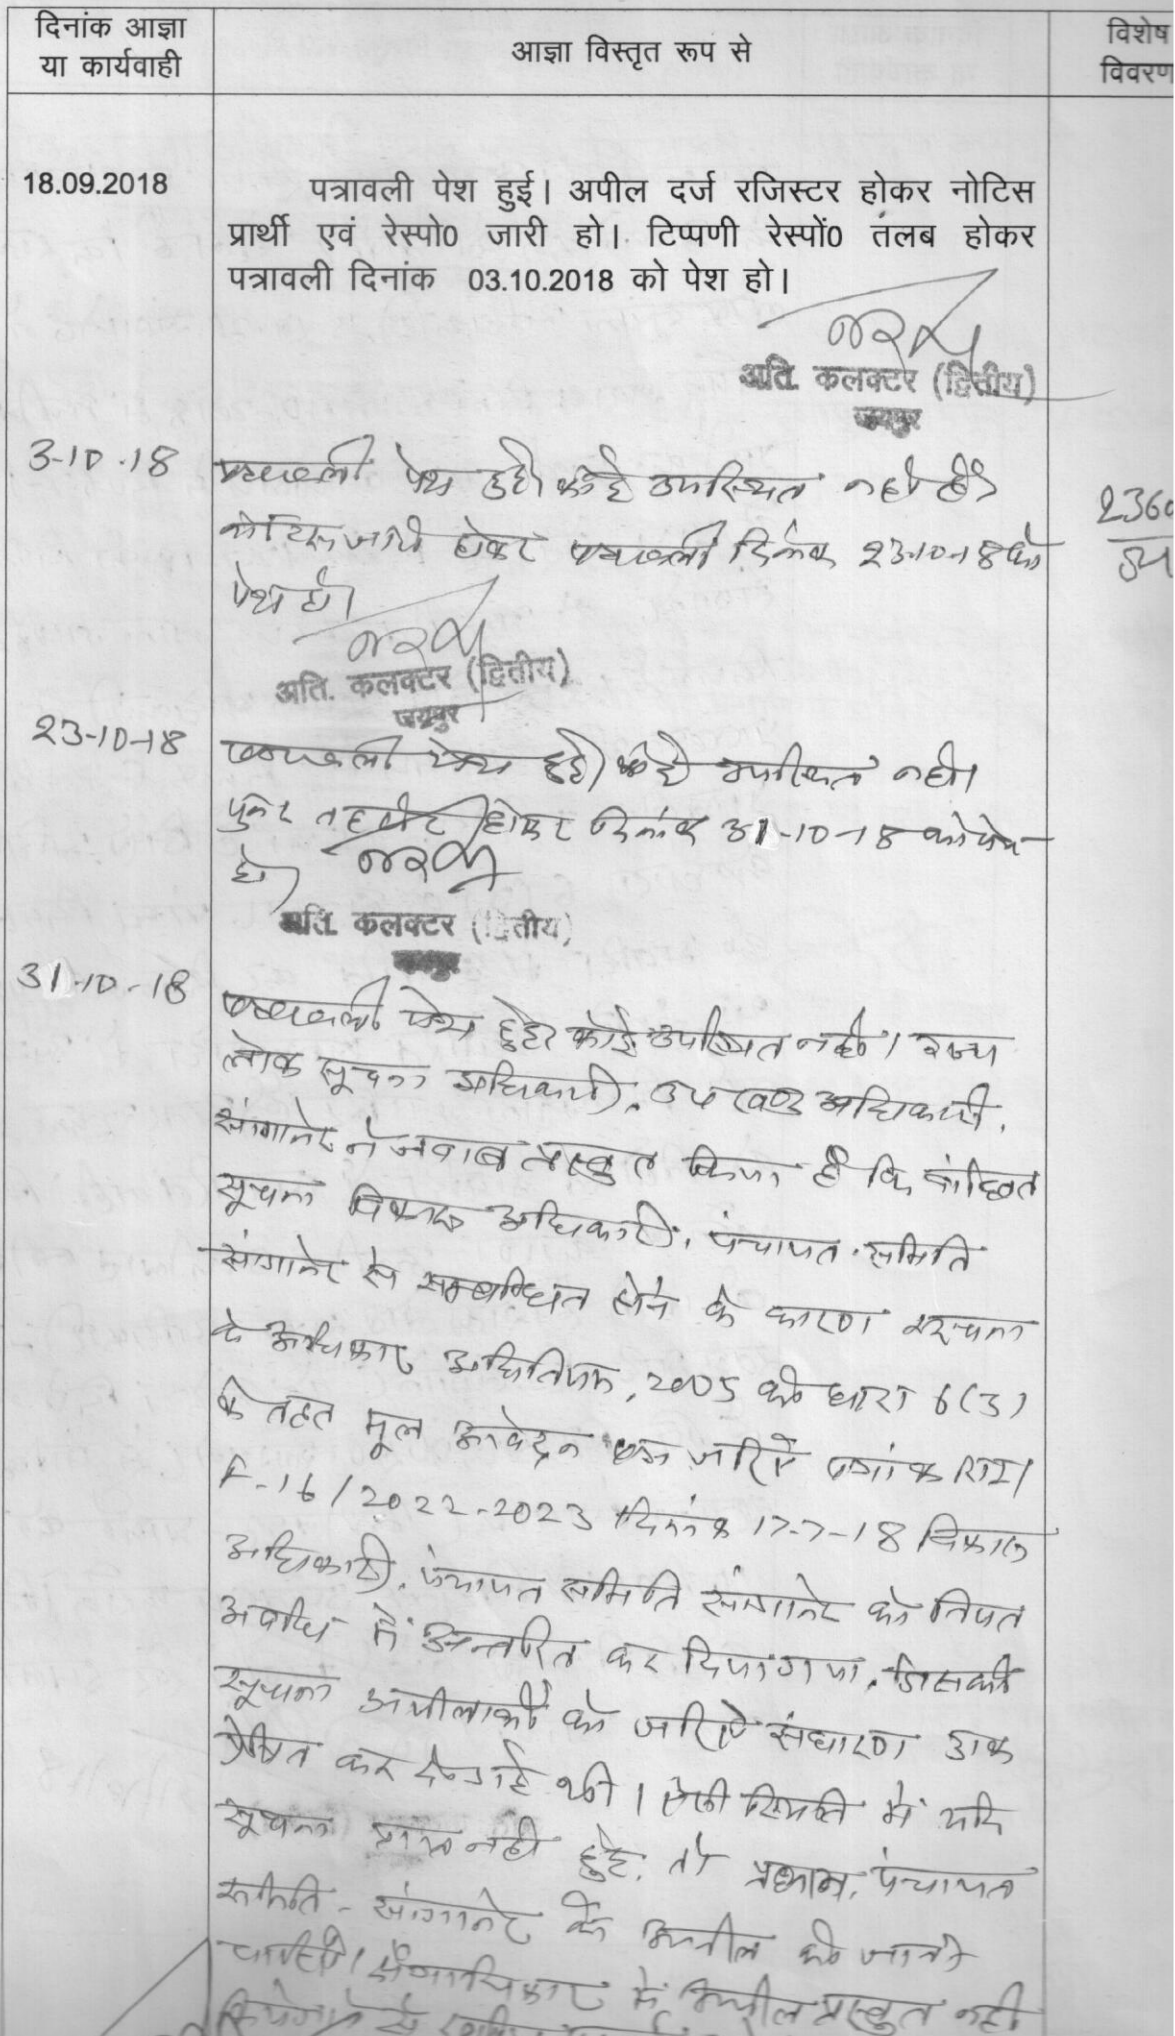 दिनांक आज्ञा
या कार्यवाही
आज्ञा विस्तृत रूप से
विशेष
विवरण
18.09.2018
पत्रावली पेश हुई। अपील दर्ज रजिस्टर होकर नोटिस
प्रार्थी एवं रेस्पो0 जारी हो। टिप्पणी रेस्पों0 तलब होकर
पत्रावली दिनांक 03.10.2018 को पेश हो।
अति. कलक्टर (द्वितीय)
जयपुर
3-10-18
पत्रावली पेश हुई। कोई उपस्थित नही है।
नोटिस जारी होकर पत्रावली दिनांक 23-10-18 को
पेश हो।
अति. कलक्टर (द्वितीय)
जयपुर
23-10-18
पत्रावली पेश हुई। कोई उपस्थित नही।
पुनः होकर दिनांक 31-10-18 को पेश
हो।
अति. कलक्टर (द्वितीय)
जयपुर
31-10-18
पत्रावली पेश हुई। कोई उपस्थित नही। राज्य
लोक सूचना अधिकारी, उपखण्ड अधिकारी,
सांगानेर ने जवाब प्रस्तुत किया है कि वांछित
सूचना विकास अधिकारी, पंचायत समिति
सांगानेर से सम्बन्धित होने के कारण सूचना
के अधिकार अधिनियम, 2005 की धारा 6(3)
के तहत मूल आवेदन पत्र जरिये क्रमांक RTI/
F-16/2022-2023 दिनांक 17-7-18 विकास
अधिकारी, पंचायत समिति सांगानेर को नियत
अवधि में अन्तरित कर दिया गया, जिसकी
सूचना अपीलार्थी को जरिये साधारण डाक
प्रेषित कर दी गई थी। ऐसी स्थिति में यदि
सूचना प्राप्त नही हुई, तो प्रधान, पंचायत
समिति - सांगानेर के अपील की जानी
चाहिये। क्षेत्राधिकार में अपील प्रस्तुत नही